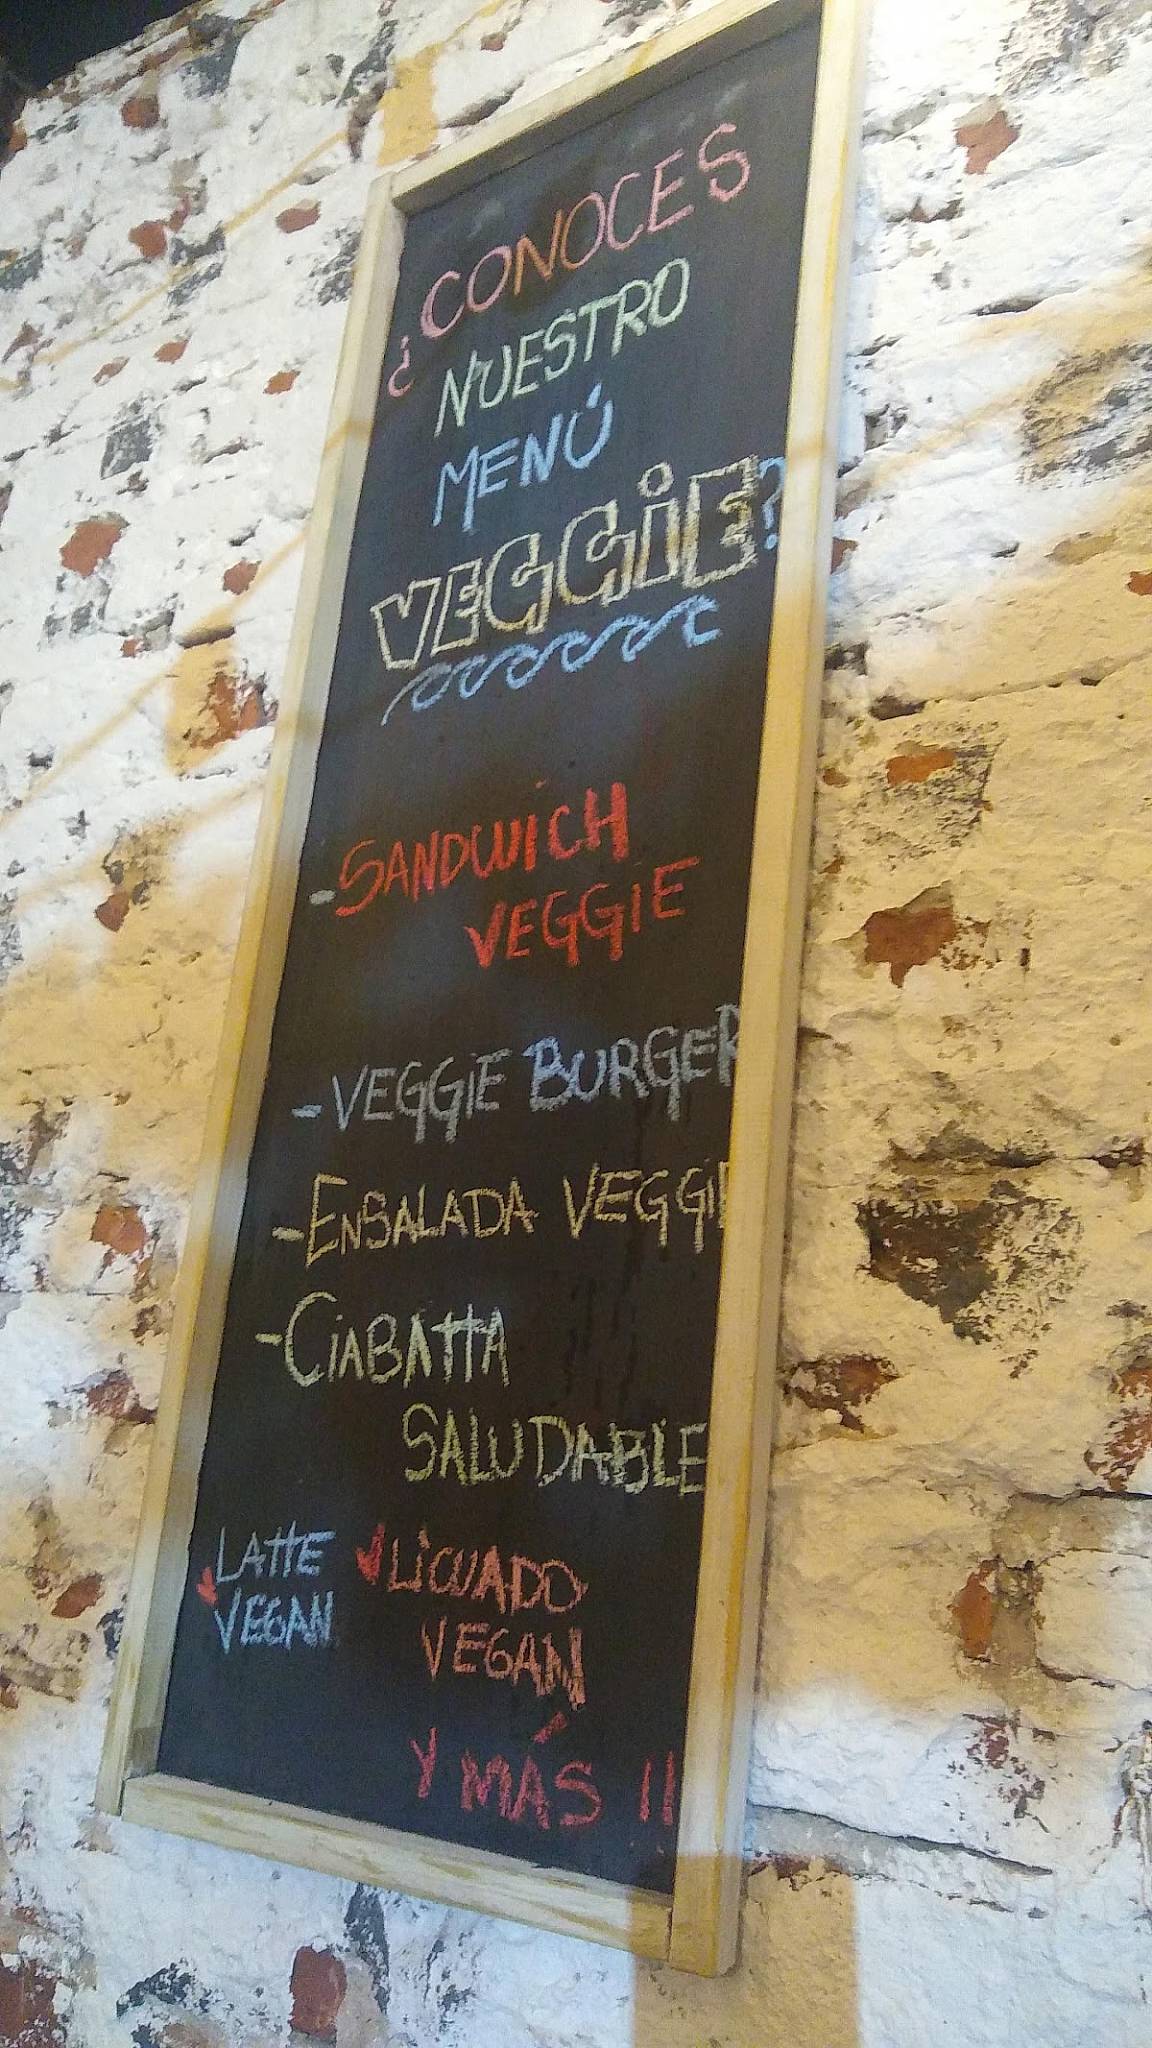 ¿CONOCES
NUESTRO
MENÚ
VEGGIE?
-SANDWICH
VEGGIE
-VEGGIE BURGER
-ENSALADA VEGGIE
-CIABATTA
SALUDABLE
LATTE
VEGAN
LICUADO
VEGAN
Y MÁS !!